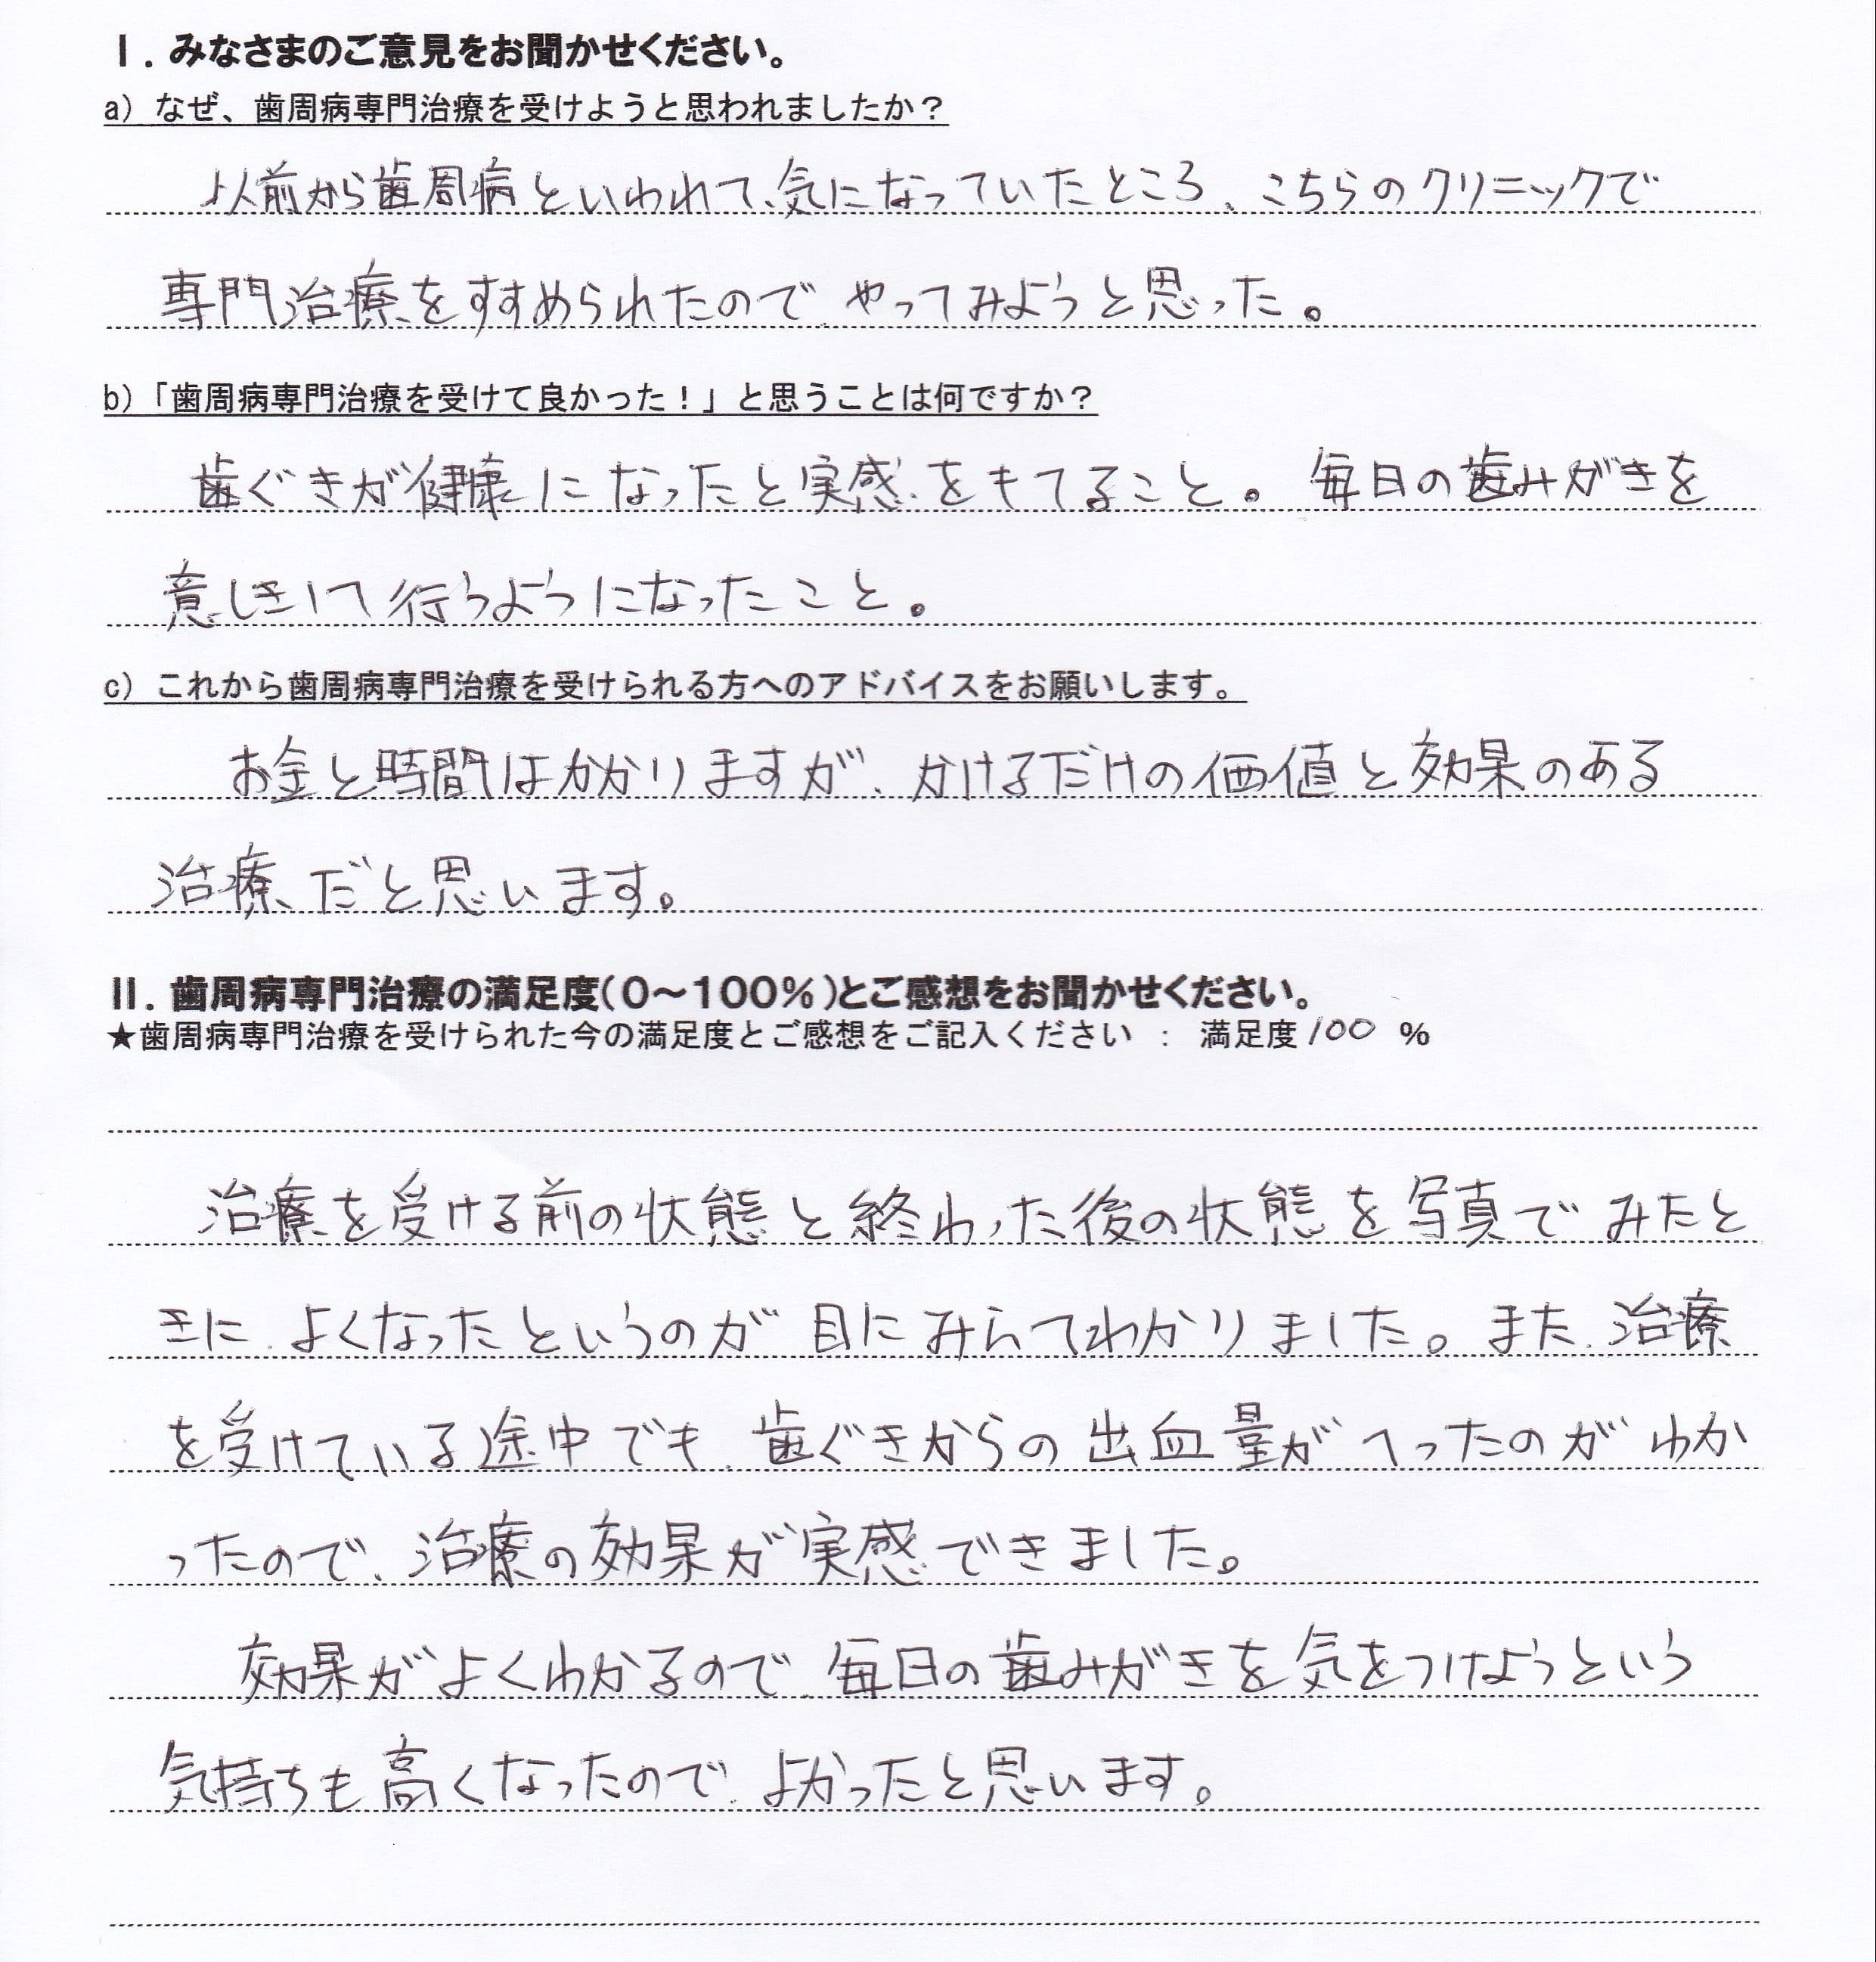 Ⅰ. みなさまのご意見をお聞かせください。
a) なぜ、歯周病専門治療を受けようと思われましたか？
以前から歯周病といわれて、気になっていたところ、こちらのクリニックで
専門治療をすすめられたので、やってみようと思った。
b)「歯周病専門治療を受けて良かった！」と思うことは何ですか？
歯ぐきが健康になったと実感をもてること。毎日の歯みがきを
意しきして行うようになったこと。
c) これから歯周病専門治療を受けられる方へのアドバイスをお願いします。
お金と時間はかかりますが、かけるだけの価値と効果のある
治療だと思います。
Ⅱ. 歯周病専門治療の満足度(0～100%)とご感想をお聞かせください。
★歯周病専門治療を受けられた今の満足度とご感想をご記入ください ： 満足度 100 %
治療を受ける前の状態と終わった後の状態を写真でみたと
きに、よくなったというのが目にみえてわかりました。また、治療
を受けている途中でも、歯ぐきからの出血量がへったのがわか
ったので、治療の効果が実感できました。
効果がよくわかるので、毎日の歯みがきを気をつけようという
気持ちも高くなったので、よかったと思います。